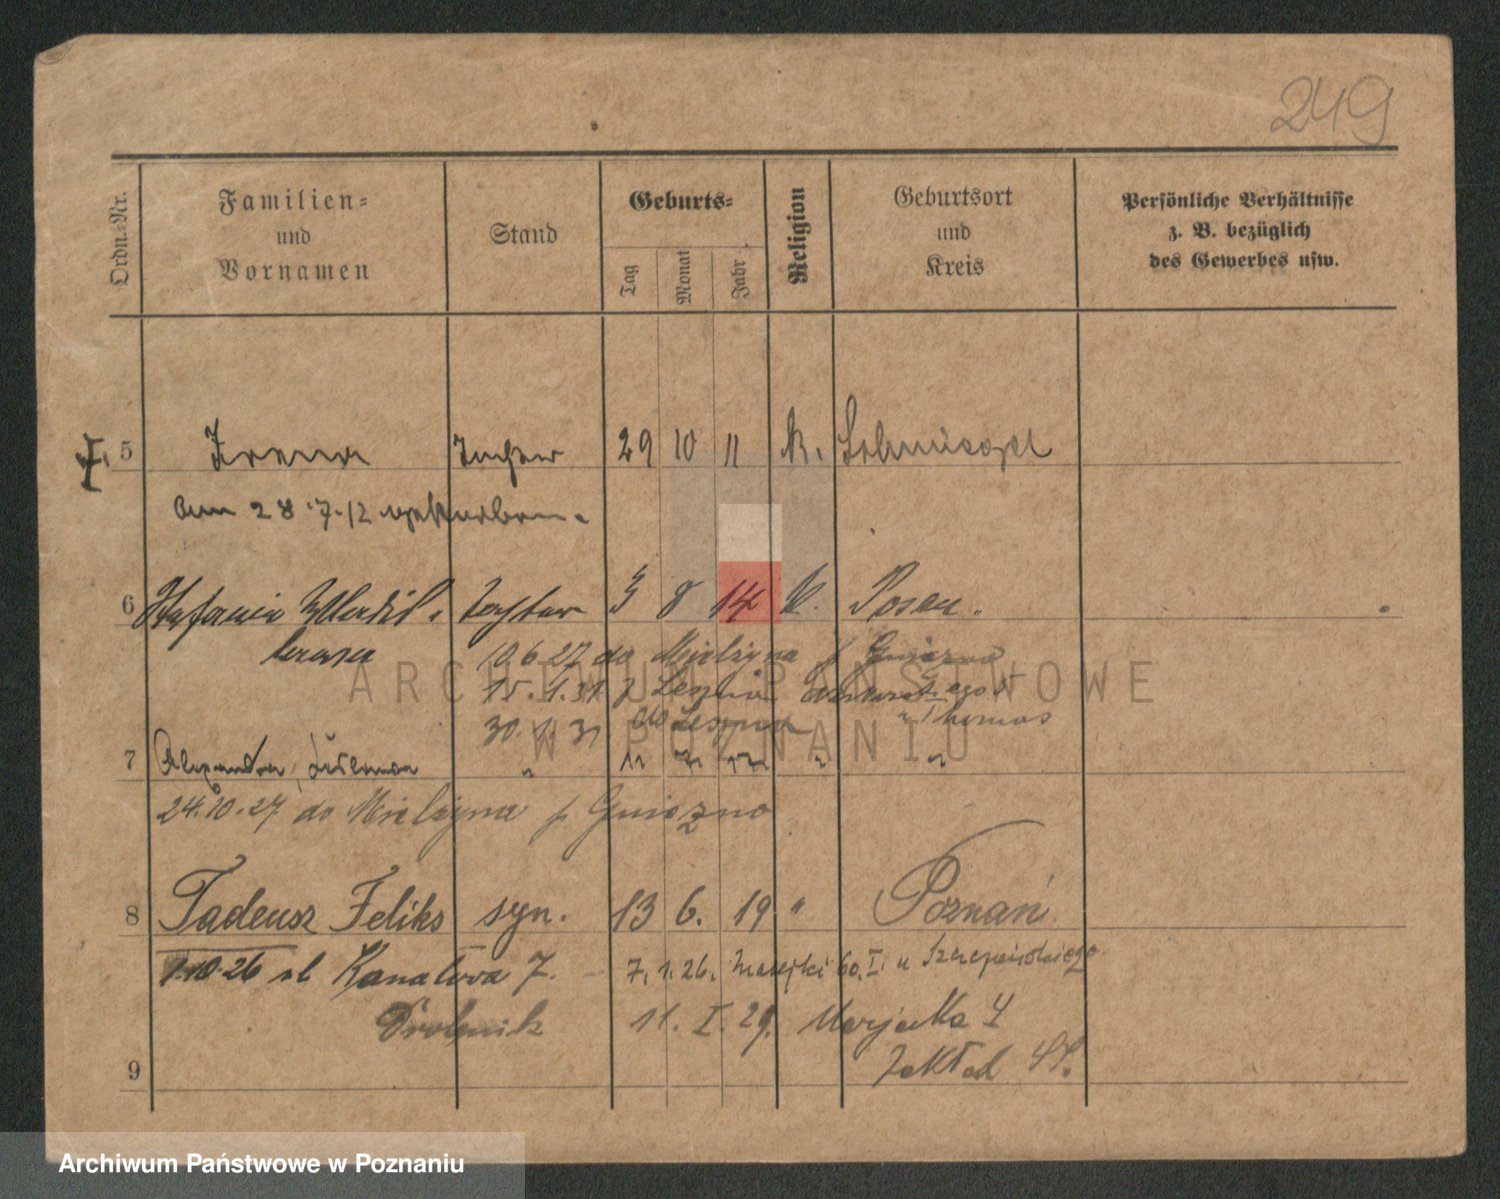 249
Ordn.=Nr.
Familien=
und
Vornamen
Stand
Geburts=
Tag
Monat
Jahr
Religion
Geburtsort
und
Kreis
Persönliche Verhältnisse
z. B. bezüglich
des Gewerbes usw.
5 Irena Tochter 29 10 11 k. Schmiegel
am 28.7.12 verstorben.
6 Stefania Tochter 3 8 14 k. Posen.
10.6.27 do Mielżyna p. Gniezna
15.1.31 z Leszna
30. 31 do Leszna Thomas
7 Alexandra, " 17 " "
24.10.27 do Mielżyna p Gniezno
8 Tadeusz Feliks syn. 13 6. 19 " Poznań
1.10.26 ul Kanałowa 7. 7.1.26. Matejki 60.I. u Szczepańskiego.
11. I. 29. Marjacka
Zakład
9
ARCHIWUM PAŃSTWOWE
W POZNANIU
Archiwum Państwowe w Poznaniu